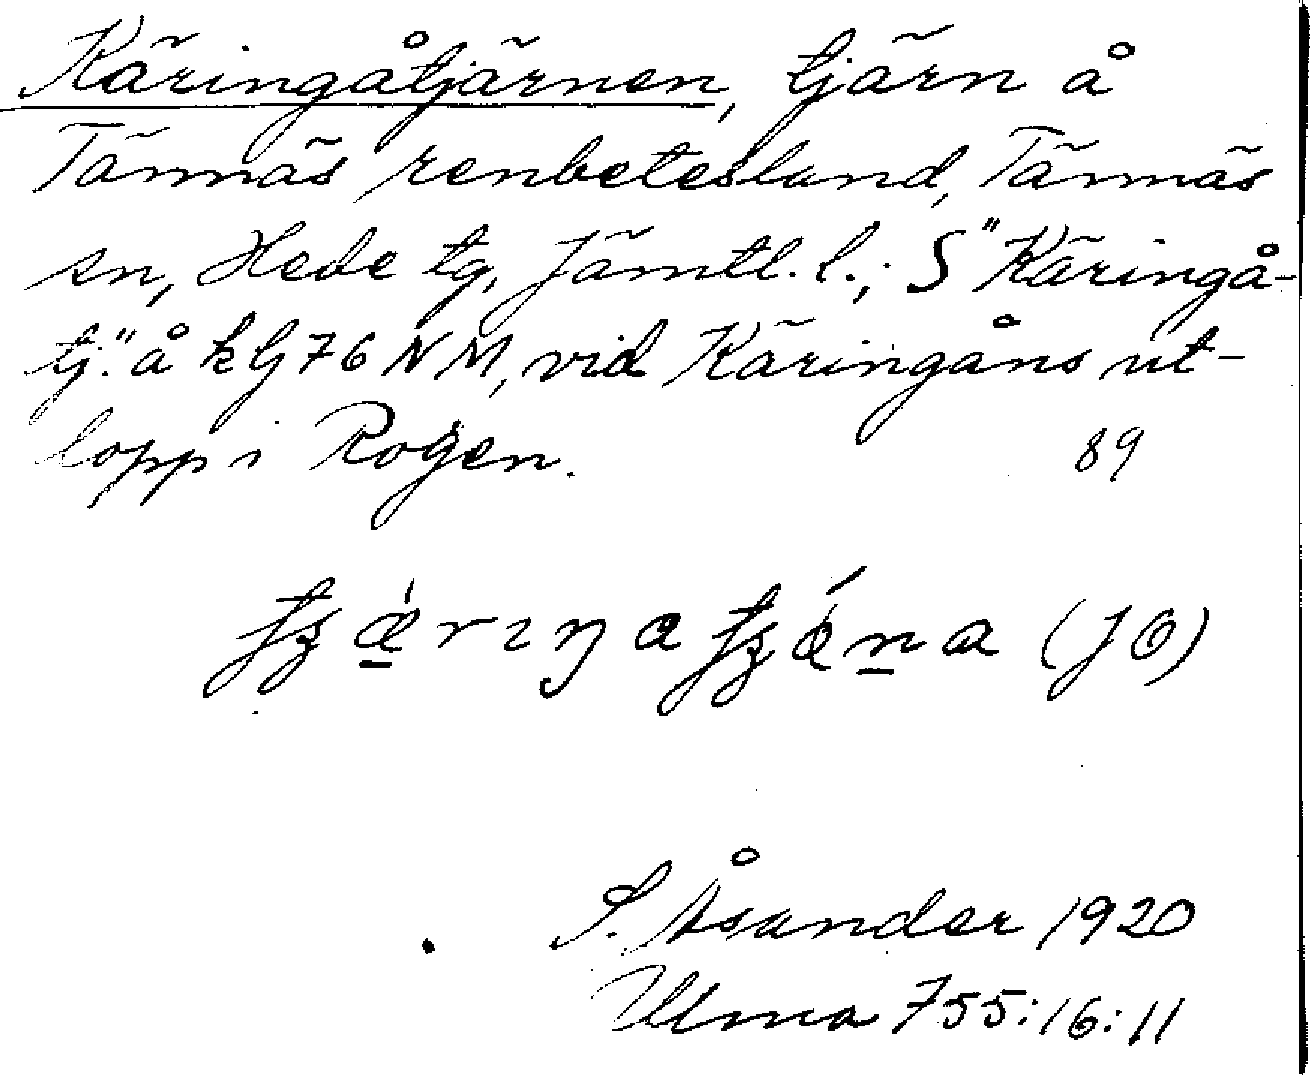 Käringåtjärnen, tjärn å
Tännäs renbetesland, Tännäs
sn, Hede tg, Jämtl. l.; S "Käringå-
tj." å kG76 NM, vid Käringåns ut-
lopp i Rogen. 89
(JO)
S. Åsander 1920
Ulma 755:16:11